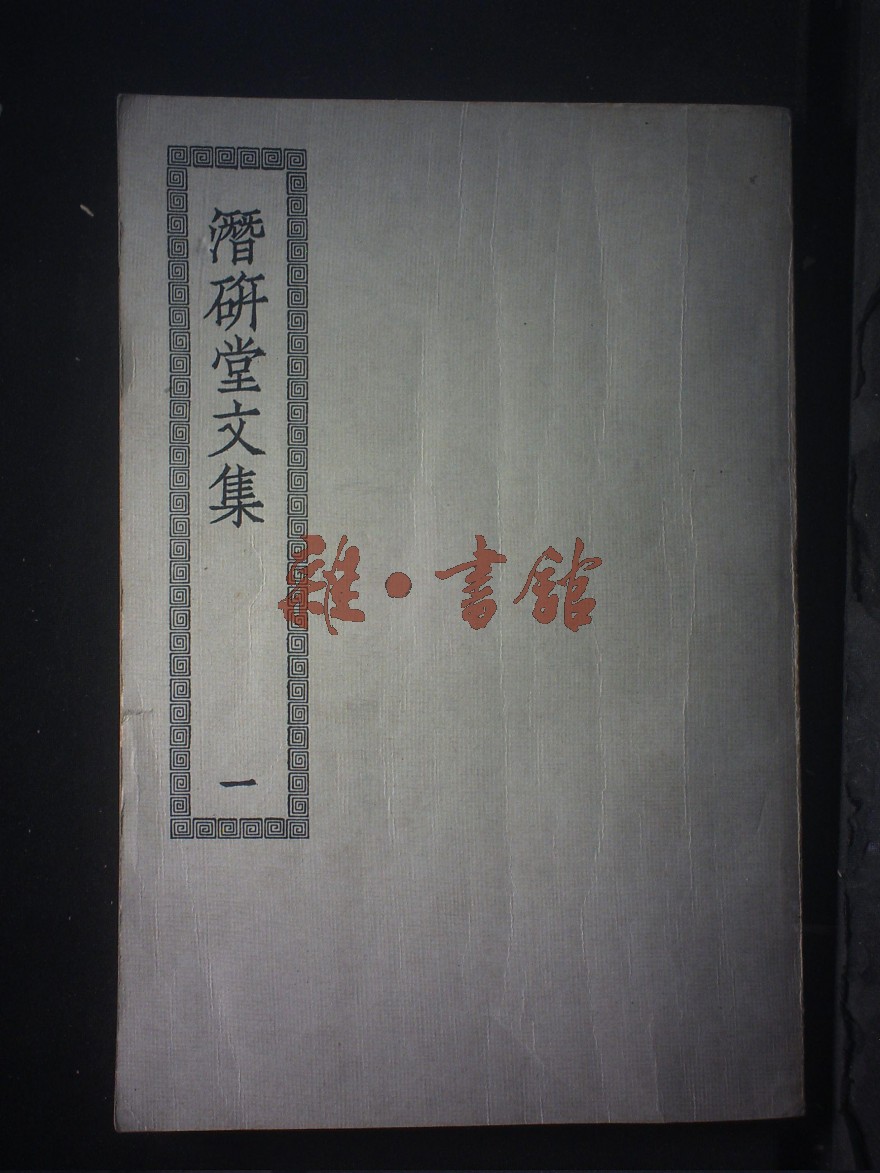 潛硏堂文集
一
雜·書館